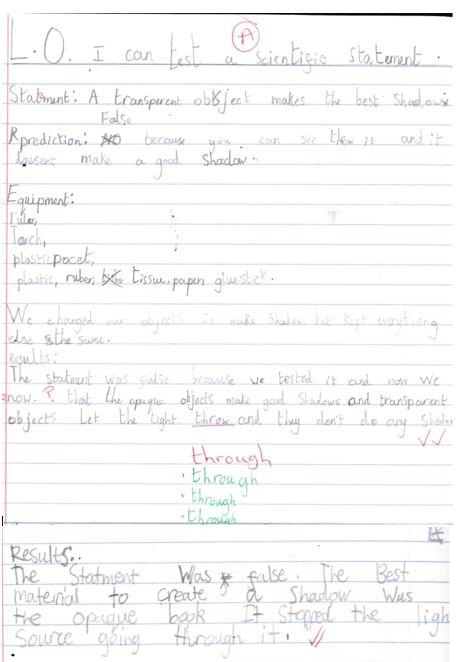 A
L.O. I can test a scientific statement.
Statment: A transparent object makes the best Shadows
False
Rprediction: because you can see throw it and it
doesent make a good Shadow.
Equipment:
ruler,
Torch,
plastic pocet,
plastic, ruber, tissue, paper gluestick.
We changed our objects to make Shadows but kept everything
else the same.
Results:
The statment was false because we tested it and now we
now. ? that the opaque objects make good Shadows and transparent
objects Let the light throw and they don't do any Shadow
through
through
through
through
Results:.
The Statment Was false. The Best
material to create a Shadow Was
the opaque book It Stopped the ligh
Source going through it.